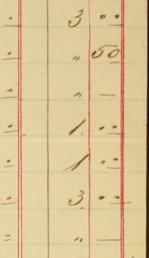 3 ..
" 50
" —
1 ..
1 ..
3 ..
" —